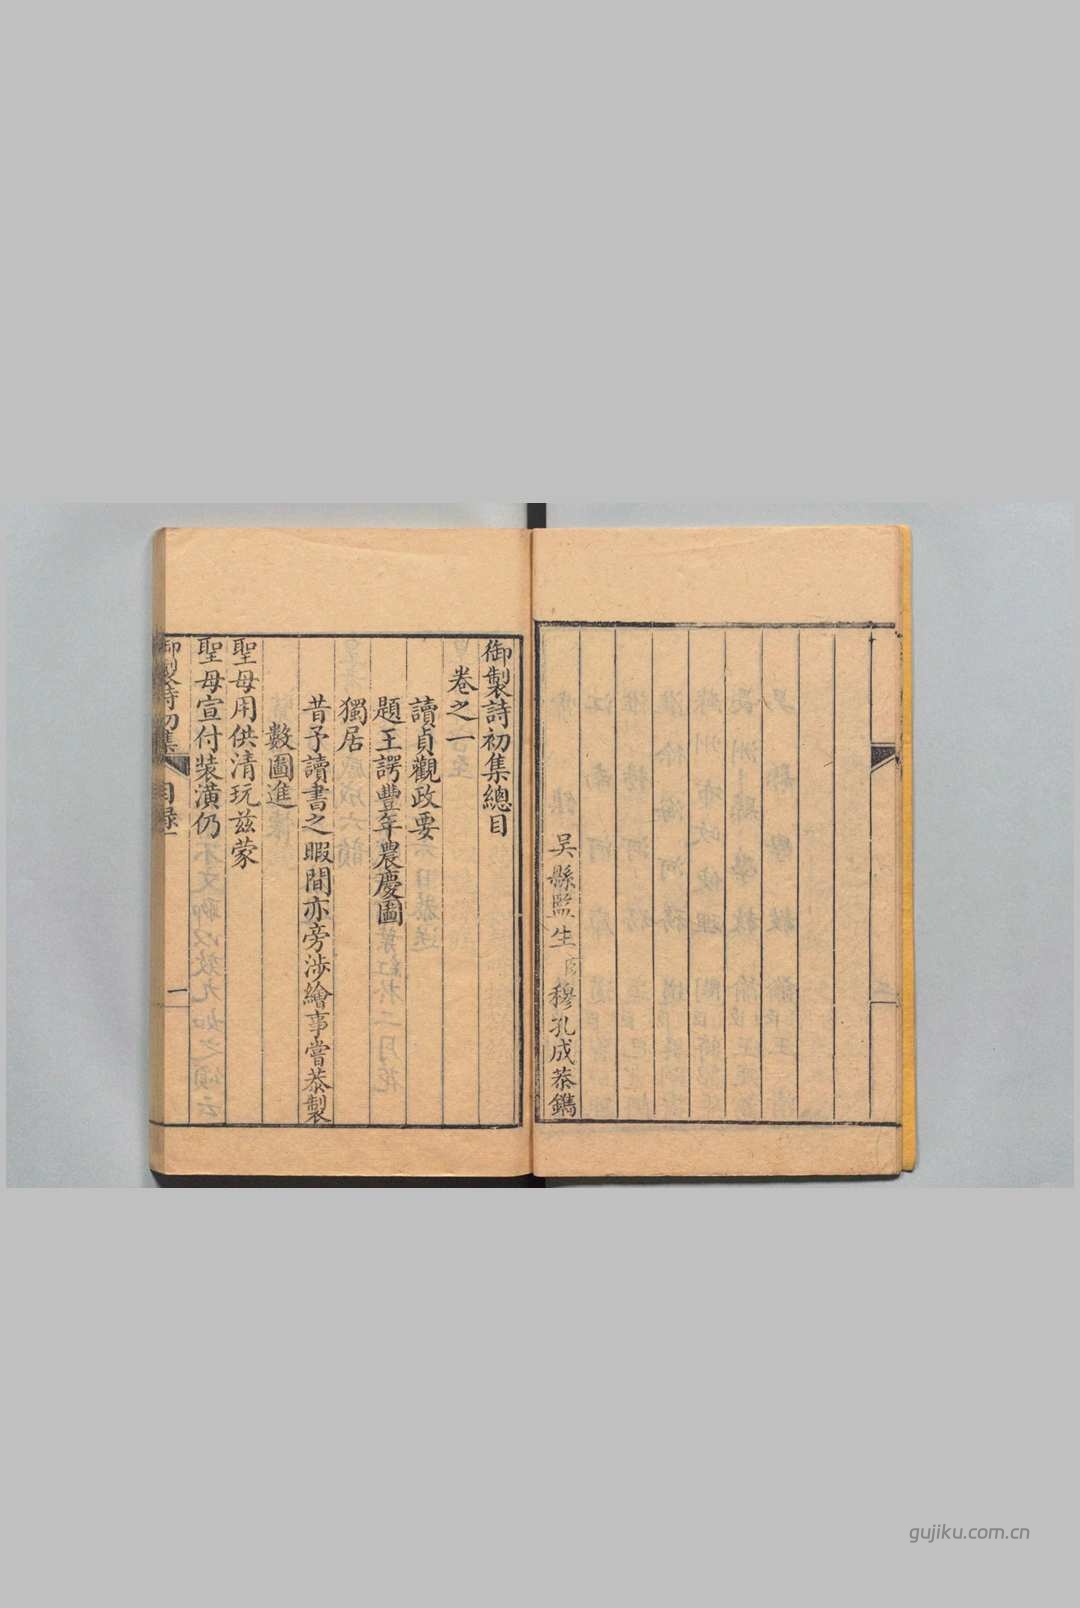 吳縣監生臣穆孔成恭鐫
御製詩初集總目
卷之一
讀貞觀政要
題王諤豐年農慶圖
獨居
昔予讀書之暇間亦旁涉繪事嘗恭製
數圖進
聖母用供清玩茲蒙
聖母宣付裝潢仍
御製詩初集
目錄
一
gujiku.com.cn